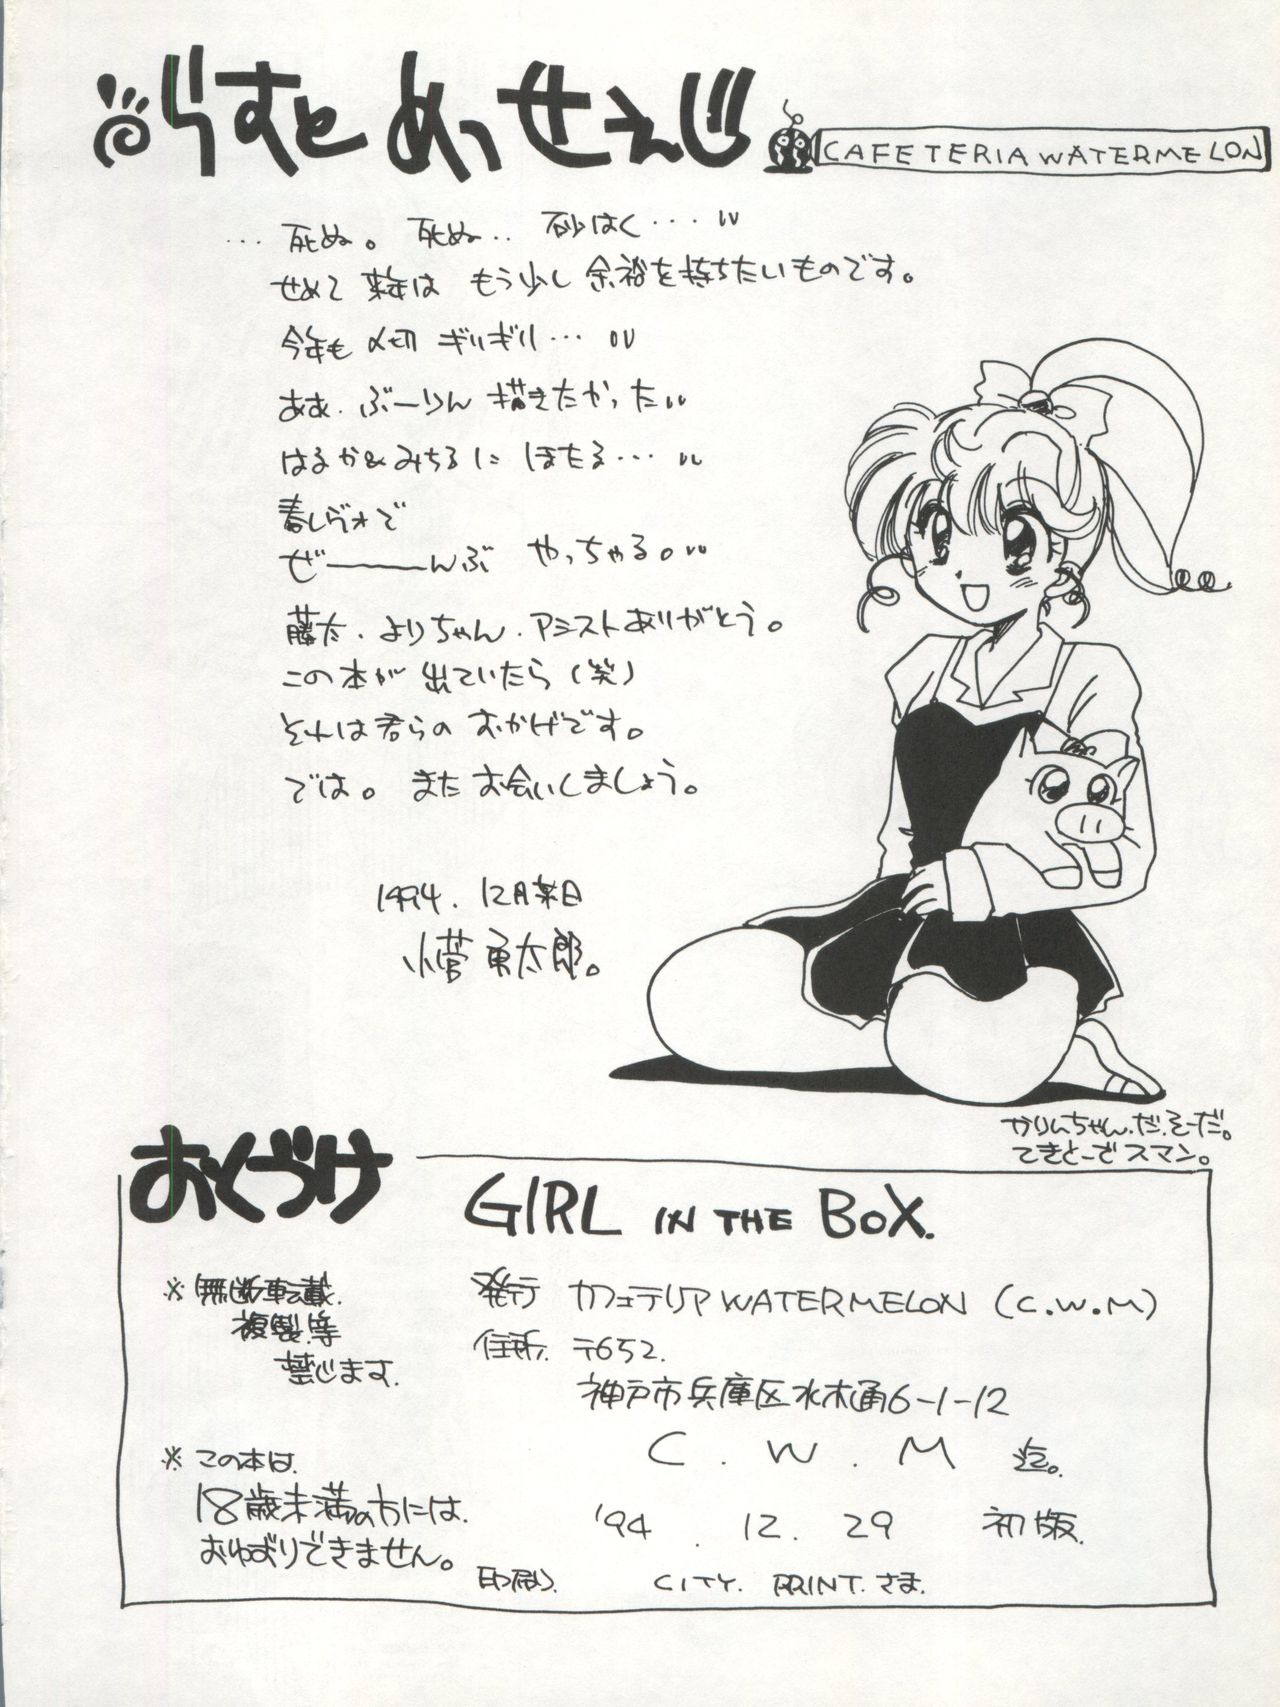 らすとめっせぇじ
CAFETERIA WATERMELON
…死ぬ。死ぬ‥ 砂はく…
せめて来年は もう少し余裕を持ちたいものです。
今年も〆切ギリギリ…
ああ、ぶーりん描きたかった
はるか&みちるにほたる…
春レヴォで
ぜ――んぶ やっちゃる。
藤太、よりちゃん、アシストありがとう。
この本が出ていたら(笑)
それは君らのおかげです。
では。またお会いしましょう。
1994.12月某日
小菅勇太郎。
かりんちゃん、だ、そーだ。
てきとーでスマン。
おくづけ
GIRL IN THE BOX.
※無断転載、
複製等
禁じます。
※この本は、
18歳未満の方には、
おゆずりできません。
発行 カフェテリアWATERMELON (C.W.M)
住所. 〒652.
神戸市兵庫区水木通6-1-12
C.W.M 迄。
'94.12.29 初版.
印刷. CITY. PRINT.さま.